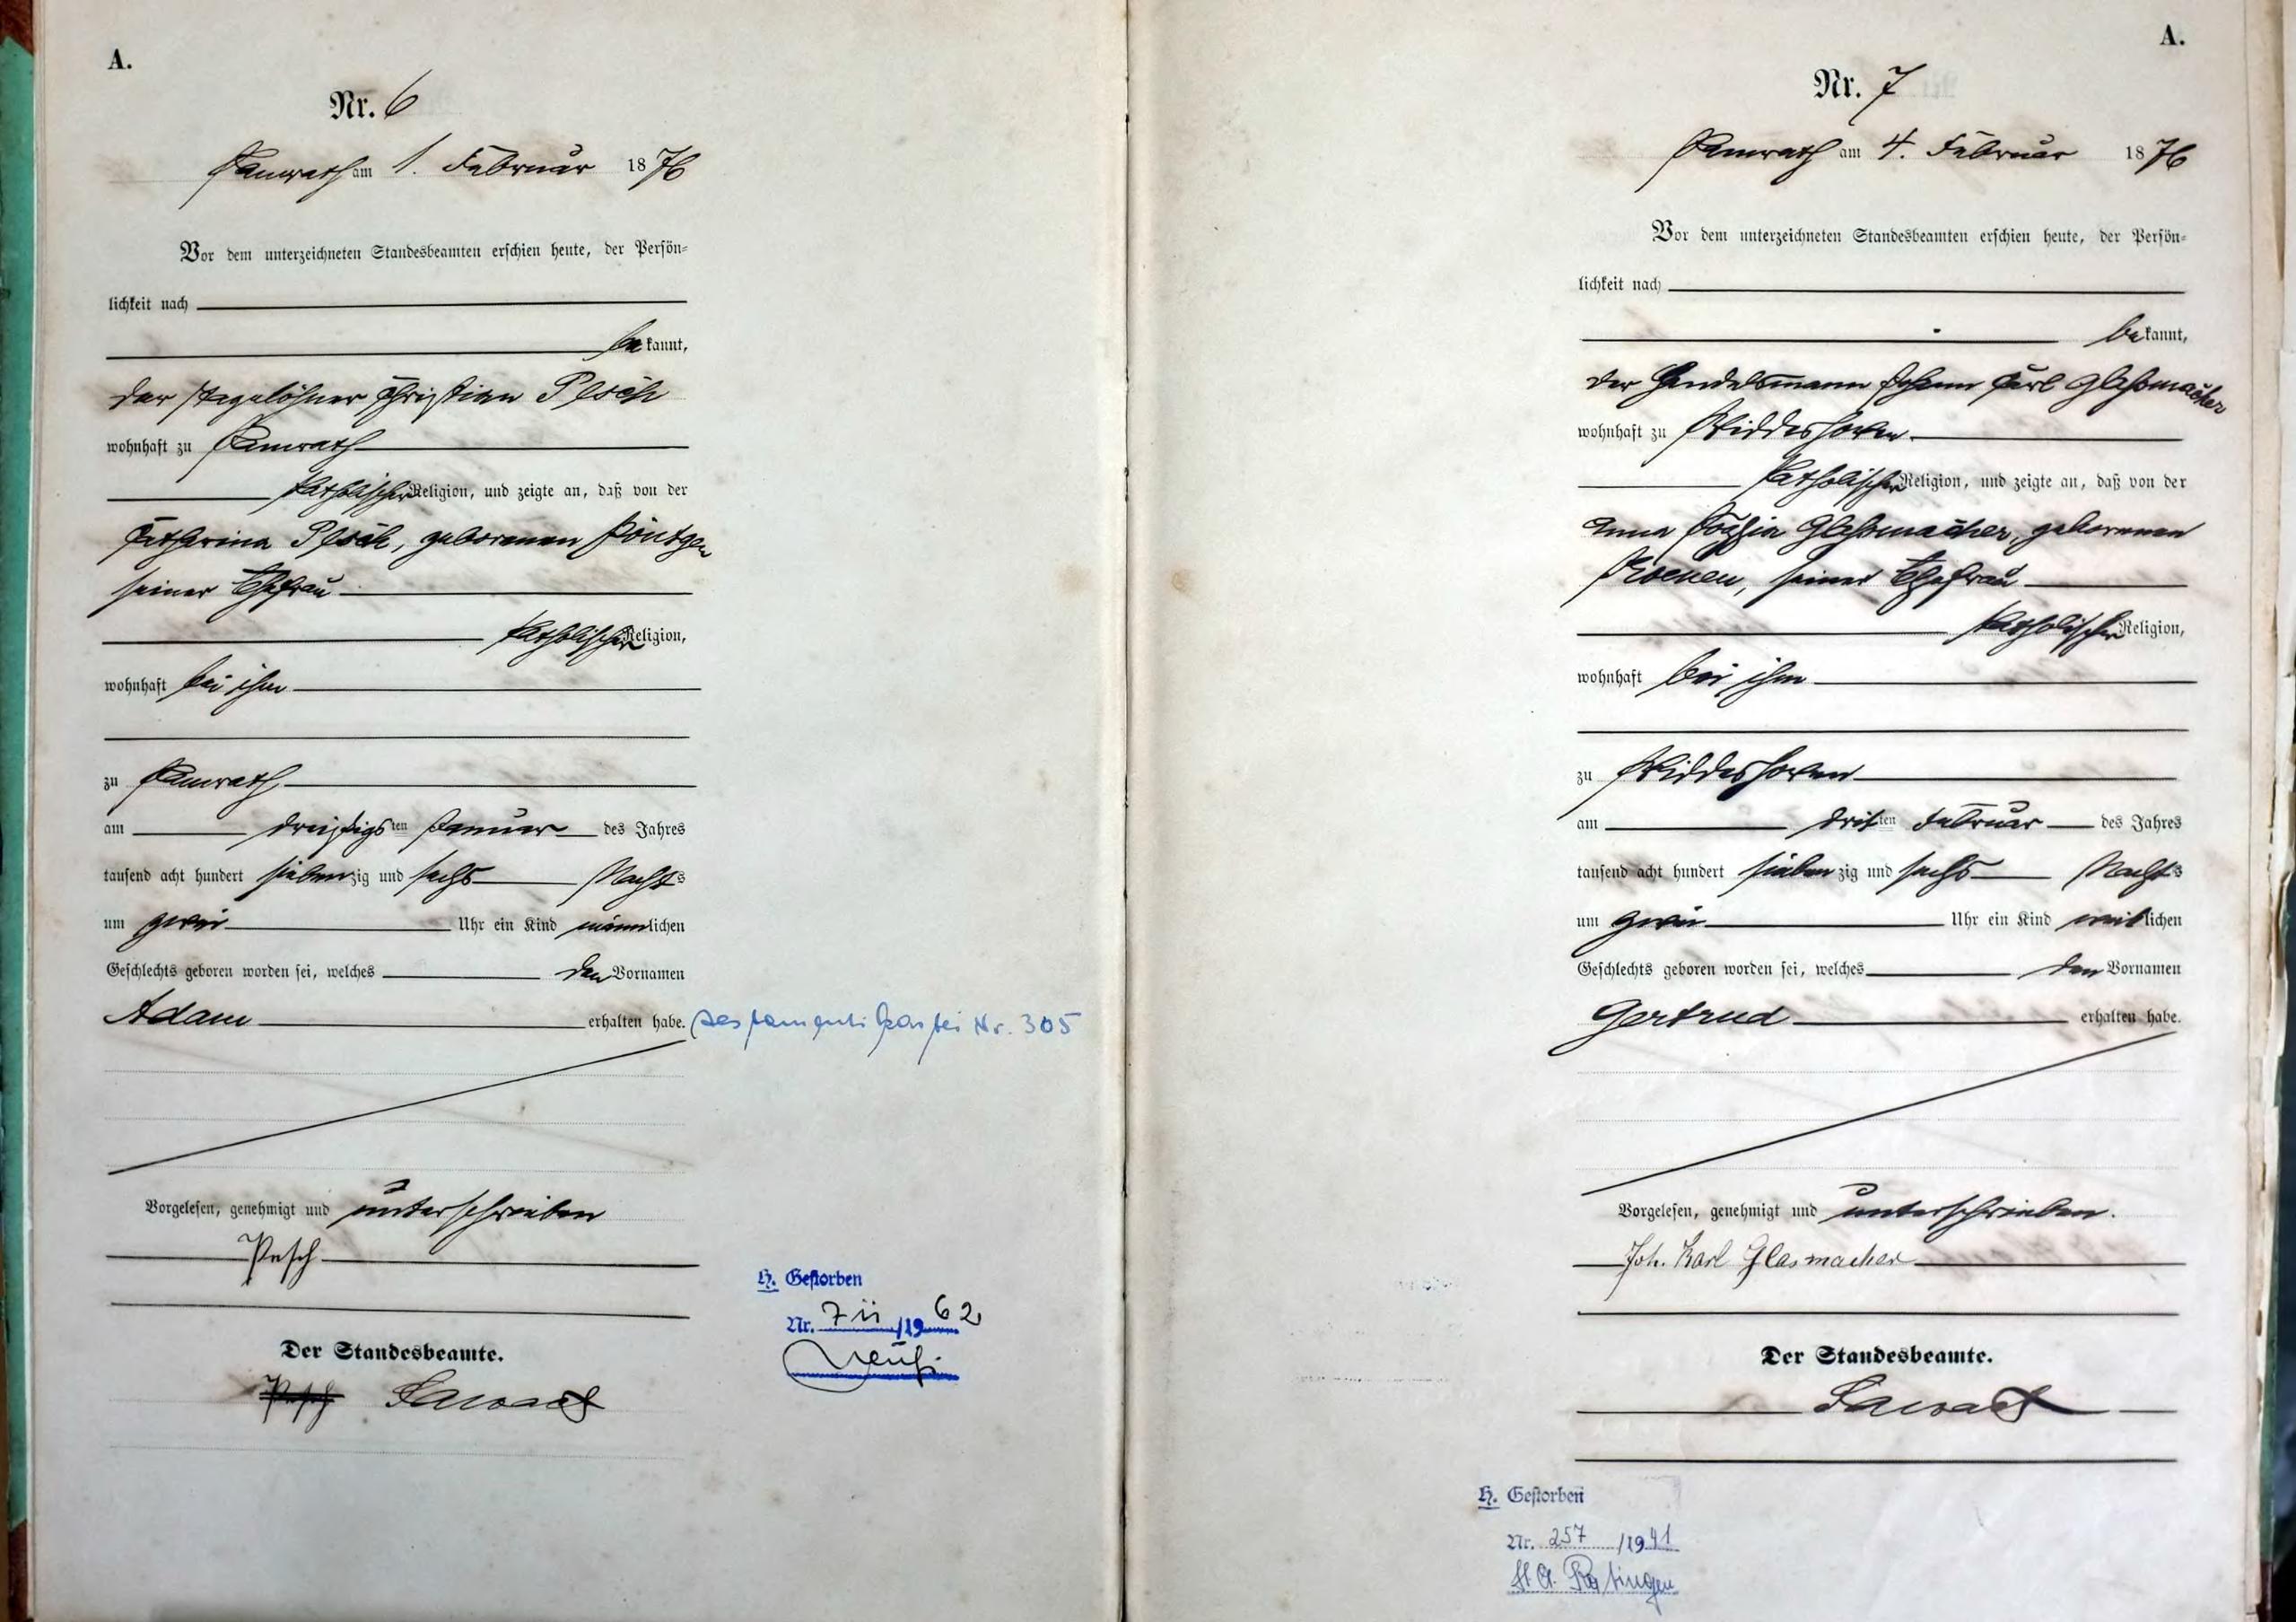 A.
Nr. 6
am 1. Februar 1876
Vor dem unterzeichneten Standesbeamten erschien heute, der Persön-
lichkeit nach
bekannt,
der Tagelöhner Christian Pesch
wohnhaft zu
katholischer Religion, und zeigte an, daß von der
Catharina Pesch, geborenen
seiner Ehefrau
katholischer Religion,
wohnhaft bei ihm
zu
am dreißigsten Januar des Jahres
tausend acht hundert siebenzig und sechs Nachts
um zwei Uhr ein Kind männlichen
Geschlechts geboren worden sei, welches den Vornamen
Adam erhalten habe. Testamentskartei Nr. 305
Vorgelesen, genehmigt und unterschrieben
Pesch
H. Gestorben
Nr. 711/1962
Neuß
Der Standesbeamte.
Pesch
A.
Nr. 7
am 4. Februar 1876
Vor dem unterzeichneten Standesbeamten erschien heute, der Persön-
lichkeit nach
bekannt,
der Handelsmann Johann Carl Glasmacher
wohnhaft zu Widdeshoven
katholischer Religion, und zeigte an, daß von der
Anna Sophia Glasmacher, geborenen
seiner Ehefrau
katholischer Religion,
wohnhaft bei ihm
zu Widdeshoven
am dritten Februar des Jahres
tausend acht hundert siebenzig und sechs Nachts
um zwei Uhr ein Kind weiblichen
Geschlechts geboren worden sei, welches den Vornamen
Gertrud erhalten habe.
Vorgelesen, genehmigt und unterschrieben.
Joh. Karl Glasmacher
Der Standesbeamte.
H. Gestorben
Nr. 257/1941
St. A. Ratingen